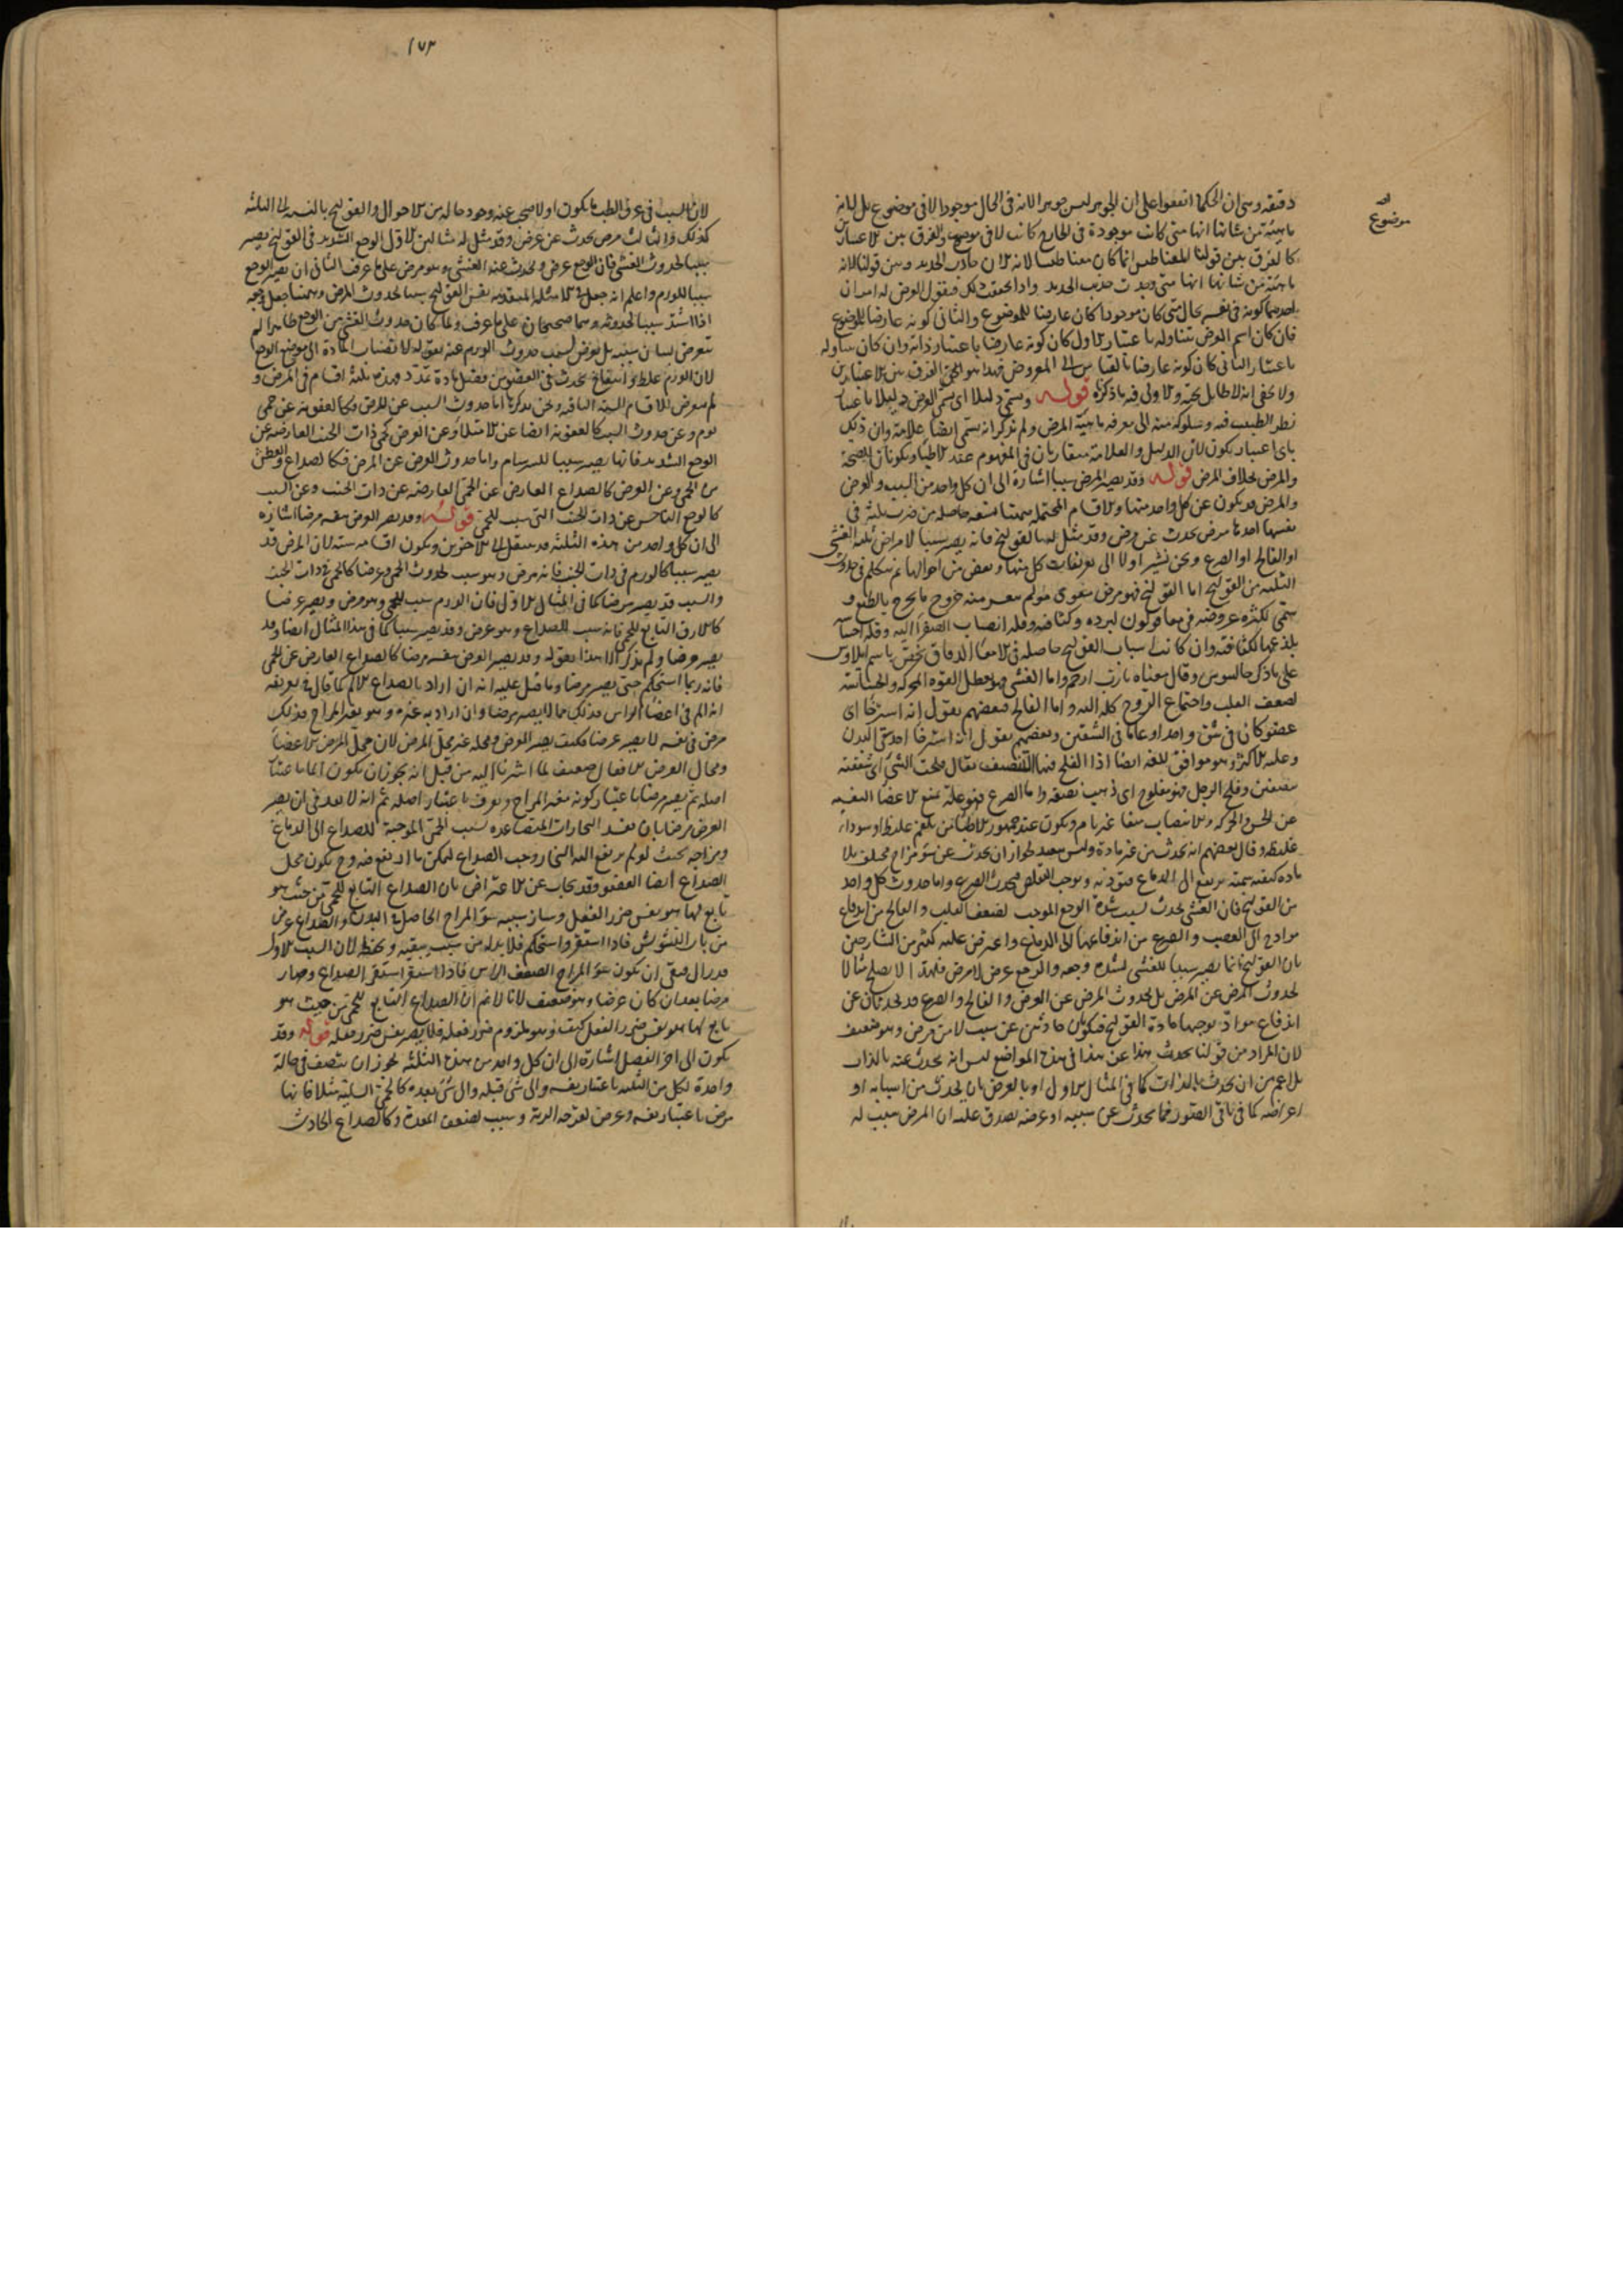 دقيقة وهى ان الحكما اتفقوا على ان الجوهر ليس جوهرا لانه فى الحال موجود لا فى موضوع بل لانه
ماهية من شانها انها متى كانت موجودة فى الخارج كانت لا فى موضوع والفرق بين الاعتبارين
كالفرق بين قولنا المغناطيس انما كان مغناطيسا لانه الان جاذب الحديد وبين قولنا لانه
ماهية من شانها انها متى وجدت جذب الحديد واذا تحققت ذلك فنقول العرض له امران
احدهما كونه فى نفسه بحال متى كان موجودا كان عارضا للموضوع والثانى كونه عارضا للموضوع
فان كان اسم العرض يتناوله باعتبار الاول كان كونه عارضا باعتبار ذاته وان كان يتناوله
باعتبار الثانى كان كونه عارضا بالقياس الى المعروض فهذا هو الفرق بين الاعتبارين
ولا يخفى انه لا طايل تحته والاولى فيه ما ذكرنا قوله ويسمى دليلا اى يسمى العرض دليلا باعتبار
نظر الطبيب فيه وسلوكه منه الى معرفة ماهية المرض ولم يذكر انه يسمى ايضا علامة وان ذلك
باى اعتبار يكون لان الدليل والعلامة متقاربان فى المفهوم عند الاطبا ويكونان للصحة
والمرض بخلاف المرض قوله وقد يصير المرض سببا اشارة الى ان كل واحد من السبب والعرض
والمرض قد يكون عن كل واحد منها والاقسام المحتملة ههنا تسعة حاصلة من ضرب ثلثة فى
نفسها احدها مرض يحدث عن مرض وقد مثل له بالقولنج فانه يصير سببا لامراض ثلثة الغشى
او الفالج او الصرع ونحن نشير اولا الى تعريفات كل منها وبعض من احوالها ثم نتكلم فى حدوث
الثلثة من القولنج اما القولنج فهو مرض معوى مولم يعسر معه خروج ما يخرج بالطبع و
سمى لكثرة عروضه فى معا قولون لبرده وكثافته وقلة انصباب الصفرا اليه وقلة احساسه
بلذعها لكثافته وان كانت اسباب القولنج حاصلة فى الامعا الدقاق يختص باسم ايلاوس
على ما ذكر جالينوس وقال معناه يا رب ارحم واما الغشى فهو تعطل القوة المحركة والحساسة
لضعف القلب واجتماع الروح كله اليه واما الفالج فبعضهم يقول انه استرخا اى
عضو كان فى شق واحد او عاما فى الشقين وبعضهم يقول انه استرخا احد شقى البدن
وعليه الاكثر وهو موافق للغة ايضا اذ الفلج فيها التنصيف يقال فلجت الشئ اى شققته
نصفين وفلج الرجل فهو مفلوج اى ذهب نصفه واما الصرع فهو علة تمنع الاعضا النفسية
عن الحس والحركة والانتصاب منعا غير تام ويكون عند جمهور الاطبا من بلغم غليظ او سودا
غليظة وقال بعضهم انه يحدث من غير مادة وليس ببعيد لجواز ان يحدث عن سؤ مزاج مختلف بلا
مادة كيفية سمية يرتفع الى الدماغ فتوذيه ويوجب التقلص فيحدث الصرع واما حدوث كل واحد
من القولنج فان الغشى يحدث بسبب شدة الوجع الموجب لضعف القلب والفالج من اندفاع
موادها الى العصب والصرع من اندفاعها الى الدماغ واعترض عليه كثير من الشارحين
بان القولنج انما يصير سببا للغشى لشدة وجعه والوجع عرض لا مرض فلهذا لا يصلح مثالا
لحدوث المرض عن المرض بل لحدوث المرض عن العرض والفالج والصرع قد يحدثان عن
اندفاع مواد توجبها مادة القولنج فيكونان حادثين عن سبب لا من مرض وهو ضعيف
لان المراد من قولنا يحدث هذا عن هذا فى هذه المواضع ليس انه يحدث عنه بالذات
بل اعم من ان يحدث بالذات كما فى المثال الاول او بالعرض بان يحدث من اسبابه او
اعراضه كما فى باقى الصور فما يحدث عن سببه او عرضه يصدق عليه ان المرض سبب له
موضوع
١٧٣
لان السبب فى عرف الطب ما يكون اولا فيجب عنه وجود حالة من الاحوال والقولنج بالنسبة الى الثلثة
كذلك والثالث مرض يحدث عن عرض وقد مثل له مثالين الاول الوجع الشديد فى القولنج يصير
سببا لحدوث الغشى فان الوجع عرض ويحدث عنه الغشى وهو مرض على ما عرف الثانى ان يصير الوجع
سببا للورم واعلم انه جعل فى الامثلة المتقدمة نفس القولنج سببا لحدوث المرض وههنا جعل وجعه
اذا اشتد سببا لحدوثه وهما صحيحان على ما عرف ولما كان حدوث الغشى من الوجع ظاهرا لم
يتعرض لبيان سببه بل تعرض لسبب حدوث الورم عنه بقوله لانصباب المادة الى موضع الوجع
لان الورم غلظ وانتفاخ يحدث فى العضو من فضل مادة تمدد فهذه ثلثة اقسام فى المرض و
لم يتعرض للاقسام الستة الباقية ونحن نذكرها اما حدوث السبب عن المرض فكالعفونة عن حمى
يوم وعن حدوث السبب كالعفونة ايضا عن الامتلا وعن العرض كحمى ذات الجنب العارضة عن
الوجع الشديد فانها يصير سببا للسرسام واما حدوث العرض عن المرض فكالصداع والعطش
من الحمى وعن العرض كالصداع العارض عن الحمى العارضة عن ذات الجنب وعن السبب
كالوجع الناخس عن ذات الجنب التى سبب للحمى قوله وقد يصير العرض بنفسه مرضا اشارة
الى ان كل واحد من هذه الثلثة قد ينتقل الى الاخرين ويكون اقسامه ستة لان المرض قد
يصير سببا كالورم فى ذات الجنب فانه مرض وهو سبب لحدوث الحمى وعرضا كالحمى فى ذات الجنب
والسبب قد يصير مرضا كما فى المثال الاول فان الورم سبب للحمى وهو مرض ويصير عرضا
كالارق التابع للحمى فانه سبب للصداع وهو عرض وقد يصير سببا كما فى هذا المثال ايضا وقد
يصير مرضا ولم يذكر الا هذا بقوله وقد يصير العرض بنفسه مرضا كالصداع العارض عن الحمى
فانه ربما استحكم حتى يصير مرضا وما قيل عليه انه ان اراد بالصداع الالم كما قال فى تعريفه
انه الم فى اعضا الراس فذلك مما لا يصير مرضا وان اراد به غيره وهو تغير المزاج فذلك
مرض فى نفسه لا يصير عرضا فكيف يصير العرض ومحله غير محل المرض لان محل المرض الاعضا
ومحال العرض الافعال ضعيف لما اشرنا اليه من قبل انه يجوز ان يكون الما باعتبار
اصله ثم يصير مرضا باعتبار كونه مغير المزاج ويعرف باعتبار اصله ثم انه لا بعد فى ان يصير
العرض مرضا بان تفسد البخارات المتصاعدة بسبب الحمى الموجبة للصداع الى الدماغ
ومزاجه بحيث لو لم يرتفع اليه البخار وجب الصداع لتمكن ما ارتفع فيه وح يكون محل
الصداع ايضا العضو وقد يجاب عن الاعتراض بان الصداع التابع للحمى من حيث هو
تابع لها هو نفس ضرر الفعل وسائر سببه سؤ المزاج الحاصل فى البدن والصداع عرض
من باب التشوش فاذا استقر واستحكم فلا بد له من سبب يبقيه ويحفظ لان السبب الاول
قد زال فبقى ان يكون سؤ المزاج المضعف الراس فاذا استقر استقر الصداع وصار
مرضا بعد ان كان عرضا وهو ضعيف لانا لا نم ان الصداع التابع للحمى من حيث هو
تابع لها هو نفس ضرر الفعل كيف وهو ملزوم ضرر فعله فلا يصير نفس ضرر فعله قوله وقد
يكون الى اخر الفصل اشارة الى ان كل واحد من هذه الثلثة يجوز ان يتصف فى حالة
واحدة لكل من الثلثة باعتبار نفسه والى شئ قبله والى شئ بعده كالحمى السلية مثلا فانها
مرض باعتبار نفسه وعرض لقرحة الرية وسبب لضعف المعدة وكالصداع الحادث